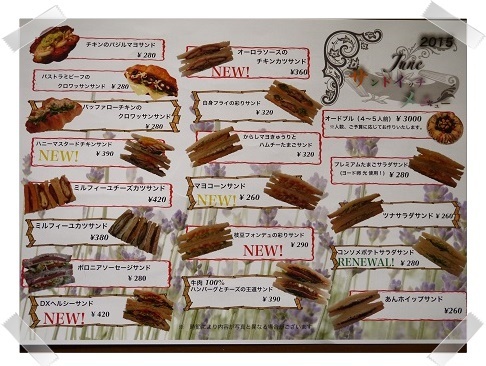 チキンのバジルマヨサンド
¥ 280
パストラミビーフの
クロワッサンサンド ¥ 280
バッファローチキンの
クロワッサンサンド
¥ 280
ハニーマスタードチキンサンド
NEW! ¥ 390
ミルフィーユチーズカツサンド
¥420
ミルフィーユカツサンド
¥380
ボロニアソーセージサンド
¥ 280
DXヘルシーサンド
NEW! ¥ 420
オーロラソースの
チキンカツサンド
NEW! ¥360
白身フライの彩りサンド
¥ 320
からしマヨきゅうりと
ハムチーたまごサンド
¥ 320
マヨコーンサンド
NEW! ¥ 260
枝豆フォンデュの彩りサンド
¥ 290
NEW!
牛肉 100%
ハンバーグとチーズの王道サンド
¥ 390
2015
June
サンドイッチ
オードブル(4~5人前) ¥ 3000
※人数、ご予算に応じてお作りいたします。
プレミアムたまごサラダサンド
(ヨード卵光 使用!) ¥ 280
ツナサラダサンド ¥ 260
コンソメポテトサラダサンド
RENEWAL! ¥ 280
あんホイップサンド
¥260